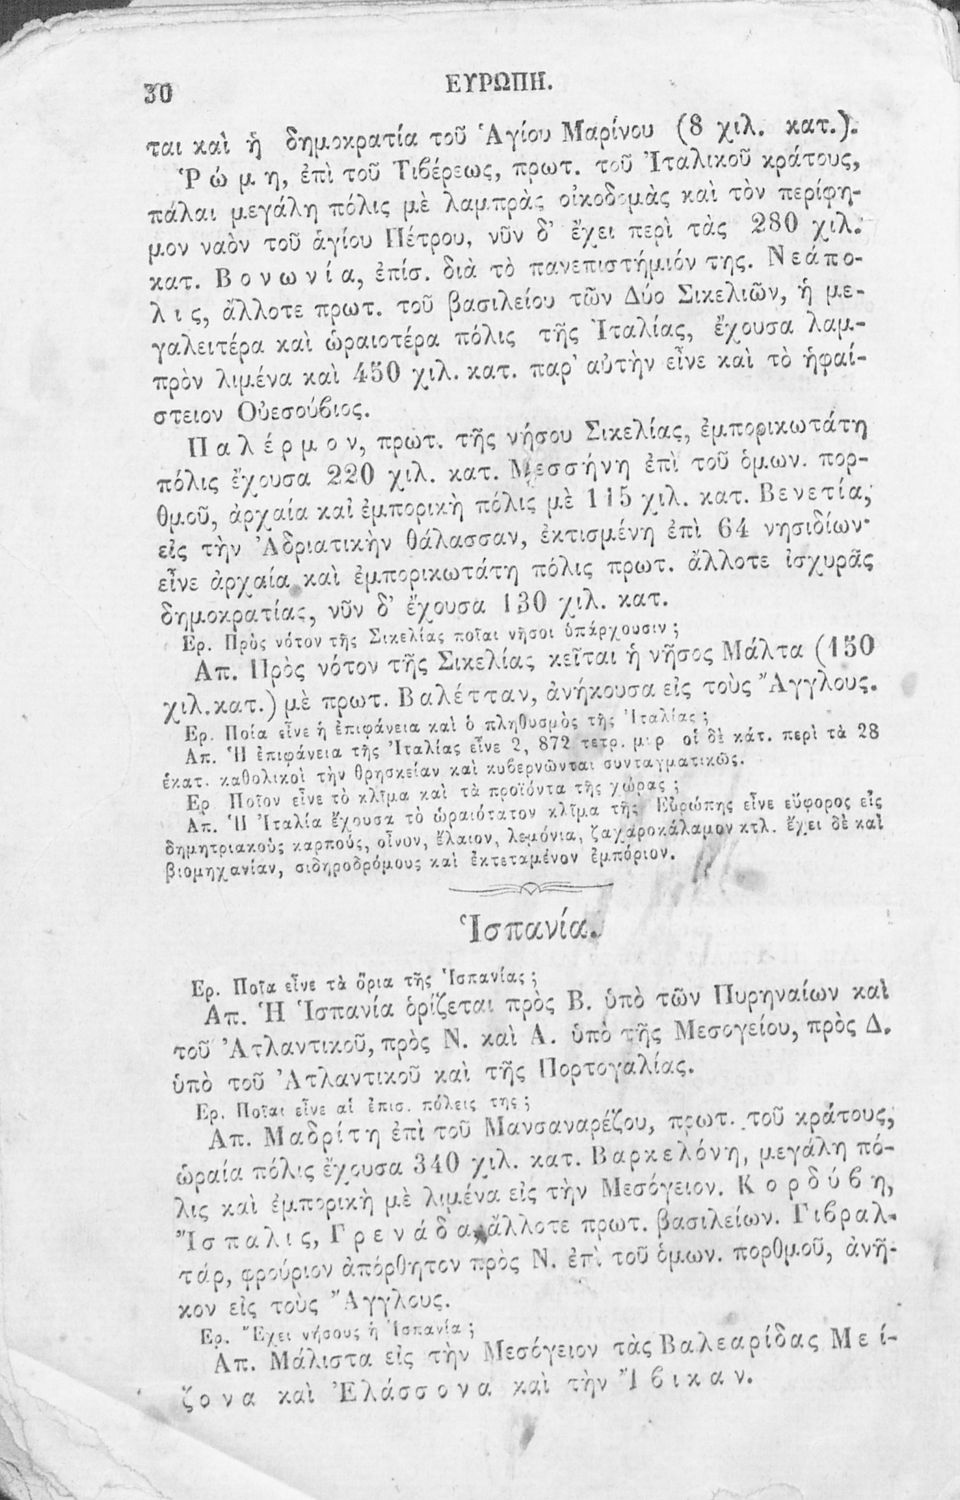 30 ΕΥΡΩΠΗ.
ται καὶ ἡ δημοκρατία τοῦ Ἁγίου Μαρίνου (8 χιλ. κατ.).
Ῥώμη, ἐπὶ τοῦ Τιβέρεως, πρωτ. τοῦ Ἰταλικοῦ κράτους,
πάλαι μεγάλη πόλις μὲ λαμπρὰς οἰκοδομὰς καὶ τὸν περίφη-
μον ναὸν τοῦ ἁγίου Πέτρου, νῦν δ’ ἔχει περὶ τὰς 280 χιλ.
κατ. Βονωνία, ἐπίσ. διὰ τὸ πανεπιστήμιόν της. Νεάπο-
λις, ἄλλοτε πρωτ. τοῦ βασιλείου τῶν Δύο Σικελιῶν, ἡ με-
γαλειτέρα καὶ ὡραιοτέρα πόλις τῆς Ἰταλίας, ἔχουσα λαμ-
πρὸν λιμένα καὶ 450 χιλ. κατ. παρ’ αὐτὴν εἶνε καὶ τὸ ἡφαί-
στειον Οὐεσούβιος.
Παλέρμον, πρωτ. τῆς νήσου Σικελίας, ἐμπορικωτάτη
πόλις ἔχουσα 220 χιλ. κατ. Μεσσήνη ἐπὶ τοῦ ὁμων. πορ-
θμοῦ, ἀρχαία καὶ ἐμπορικὴ πόλις μὲ 115 χιλ. κατ. Βενετία,
εἰς τὴν Ἀδριατικὴν θάλασσαν, ἐκτισμένη ἐπὶ 64 νησιδίων·
εἶνε ἀρχαία καὶ ἐμπορικωτάτη πόλις πρωτ. ἄλλοτε ἰσχυρᾶς
δημοκρατίας, νῦν δ’ ἔχουσα 130 χιλ. κατ.
Ερ. Πρὸς νότον τῆς Σικελίας ποῖαι νῆσοι ὑπάρχουσιν;
Απ. Πρὸς νότον τῆς Σικελίας κεῖται ἡ νῆσος Μάλτα (150
χιλ. κατ.) μὲ πρωτ. Βαλέτταν, ἀνήκουσα εἰς τοὺς Ἄγγλους.
Ερ. Ποία εἶνε ἡ ἐπιφάνεια καὶ ὁ πληθυσμὸς τῆς Ἰταλίας;
Απ. Ἡ ἐπιφάνεια τῆς Ἰταλίας εἶνε 2, 872 τετρ. μυρ οἱ δὲ κάτ. περὶ τὰ 28
ἑκατ. καθολικοὶ τὴν θρησκείαν καὶ κυβερνῶνται συνταγματικῶς.
Ερ Ποῖον εἶνε τὸ κλῖμα καὶ τὰ προϊόντα τῆς χώρας;
Απ. Ἡ Ἰταλία ἔχουσα τὸ ὡραιότατον κλῖμα τῆς Εὐρώπης εἶνε εὔφορος εἰς
δημητριακοὺς καρποὺς, οἶνον, ἔλαιον, λεμόνια, ζαχαροκάλαμον κτλ. ἔχει δὲ καὶ
βιομηχανίαν, σιδηροδρόμους καὶ ἐκτεταμένον ἐμπόριον.
Ἱσπανία.
Ερ. Ποῖα εἶνε τὰ ὅρια τῆς Ἱσπανίας;
Απ. Ἡ Ἱσπανία ὁρίζεται πρὸς Β. ὑπὸ τῶν Πυρηναίων καὶ
τοῦ Ἀτλαντικοῦ, πρὸς Ν. καὶ Α. ὑπὸ τῆς Μεσογείου, πρὸς Δ.
ὑπὸ τοῦ Ἀτλαντικοῦ καὶ τῆς Πορτογαλίας.
Ερ. Ποῖαι εἶνε αἱ ἐπισ. πόλεις της;
Απ. Μαδρίτη ἐπὶ τοῦ Μανσαναρέζου, πρωτ. τοῦ κράτους,
ὡραία πόλις ἔχουσα 340 χιλ. κατ. Βαρκελόνη, μεγάλη πό-
λις καὶ ἐμπορικὴ μὲ λιμένα εἰς τὴν Μεσόγειον. Κορδύβη,
Ἴσπαλις, Γρενάδα, ἄλλοτε πρωτ. βασιλείων. Γιβραλ-
τάρ, φρούριον ἀπόρθητον πρὸς Ν. ἐπὶ τοῦ ὁμων. πορθμοῦ, ἀνῆ-
κον εἰς τοὺς Ἄγγλους.
Ερ. Ἔχει νήσους ἡ Ἱσπανία;
Απ. Μάλιστα εἰς τὴν Μεσόγειον τὰς Βαλεαρίδας Μεί-
ζονα καὶ Ἐλάσσονα καὶ τὴν Ἴβικαν.